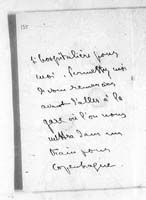 si hospitalière pour
moi. Permettez moi
de vous remercier
avant d'aller à la
gare où l'on nous
mettra dans un
train pour
Copenhague.